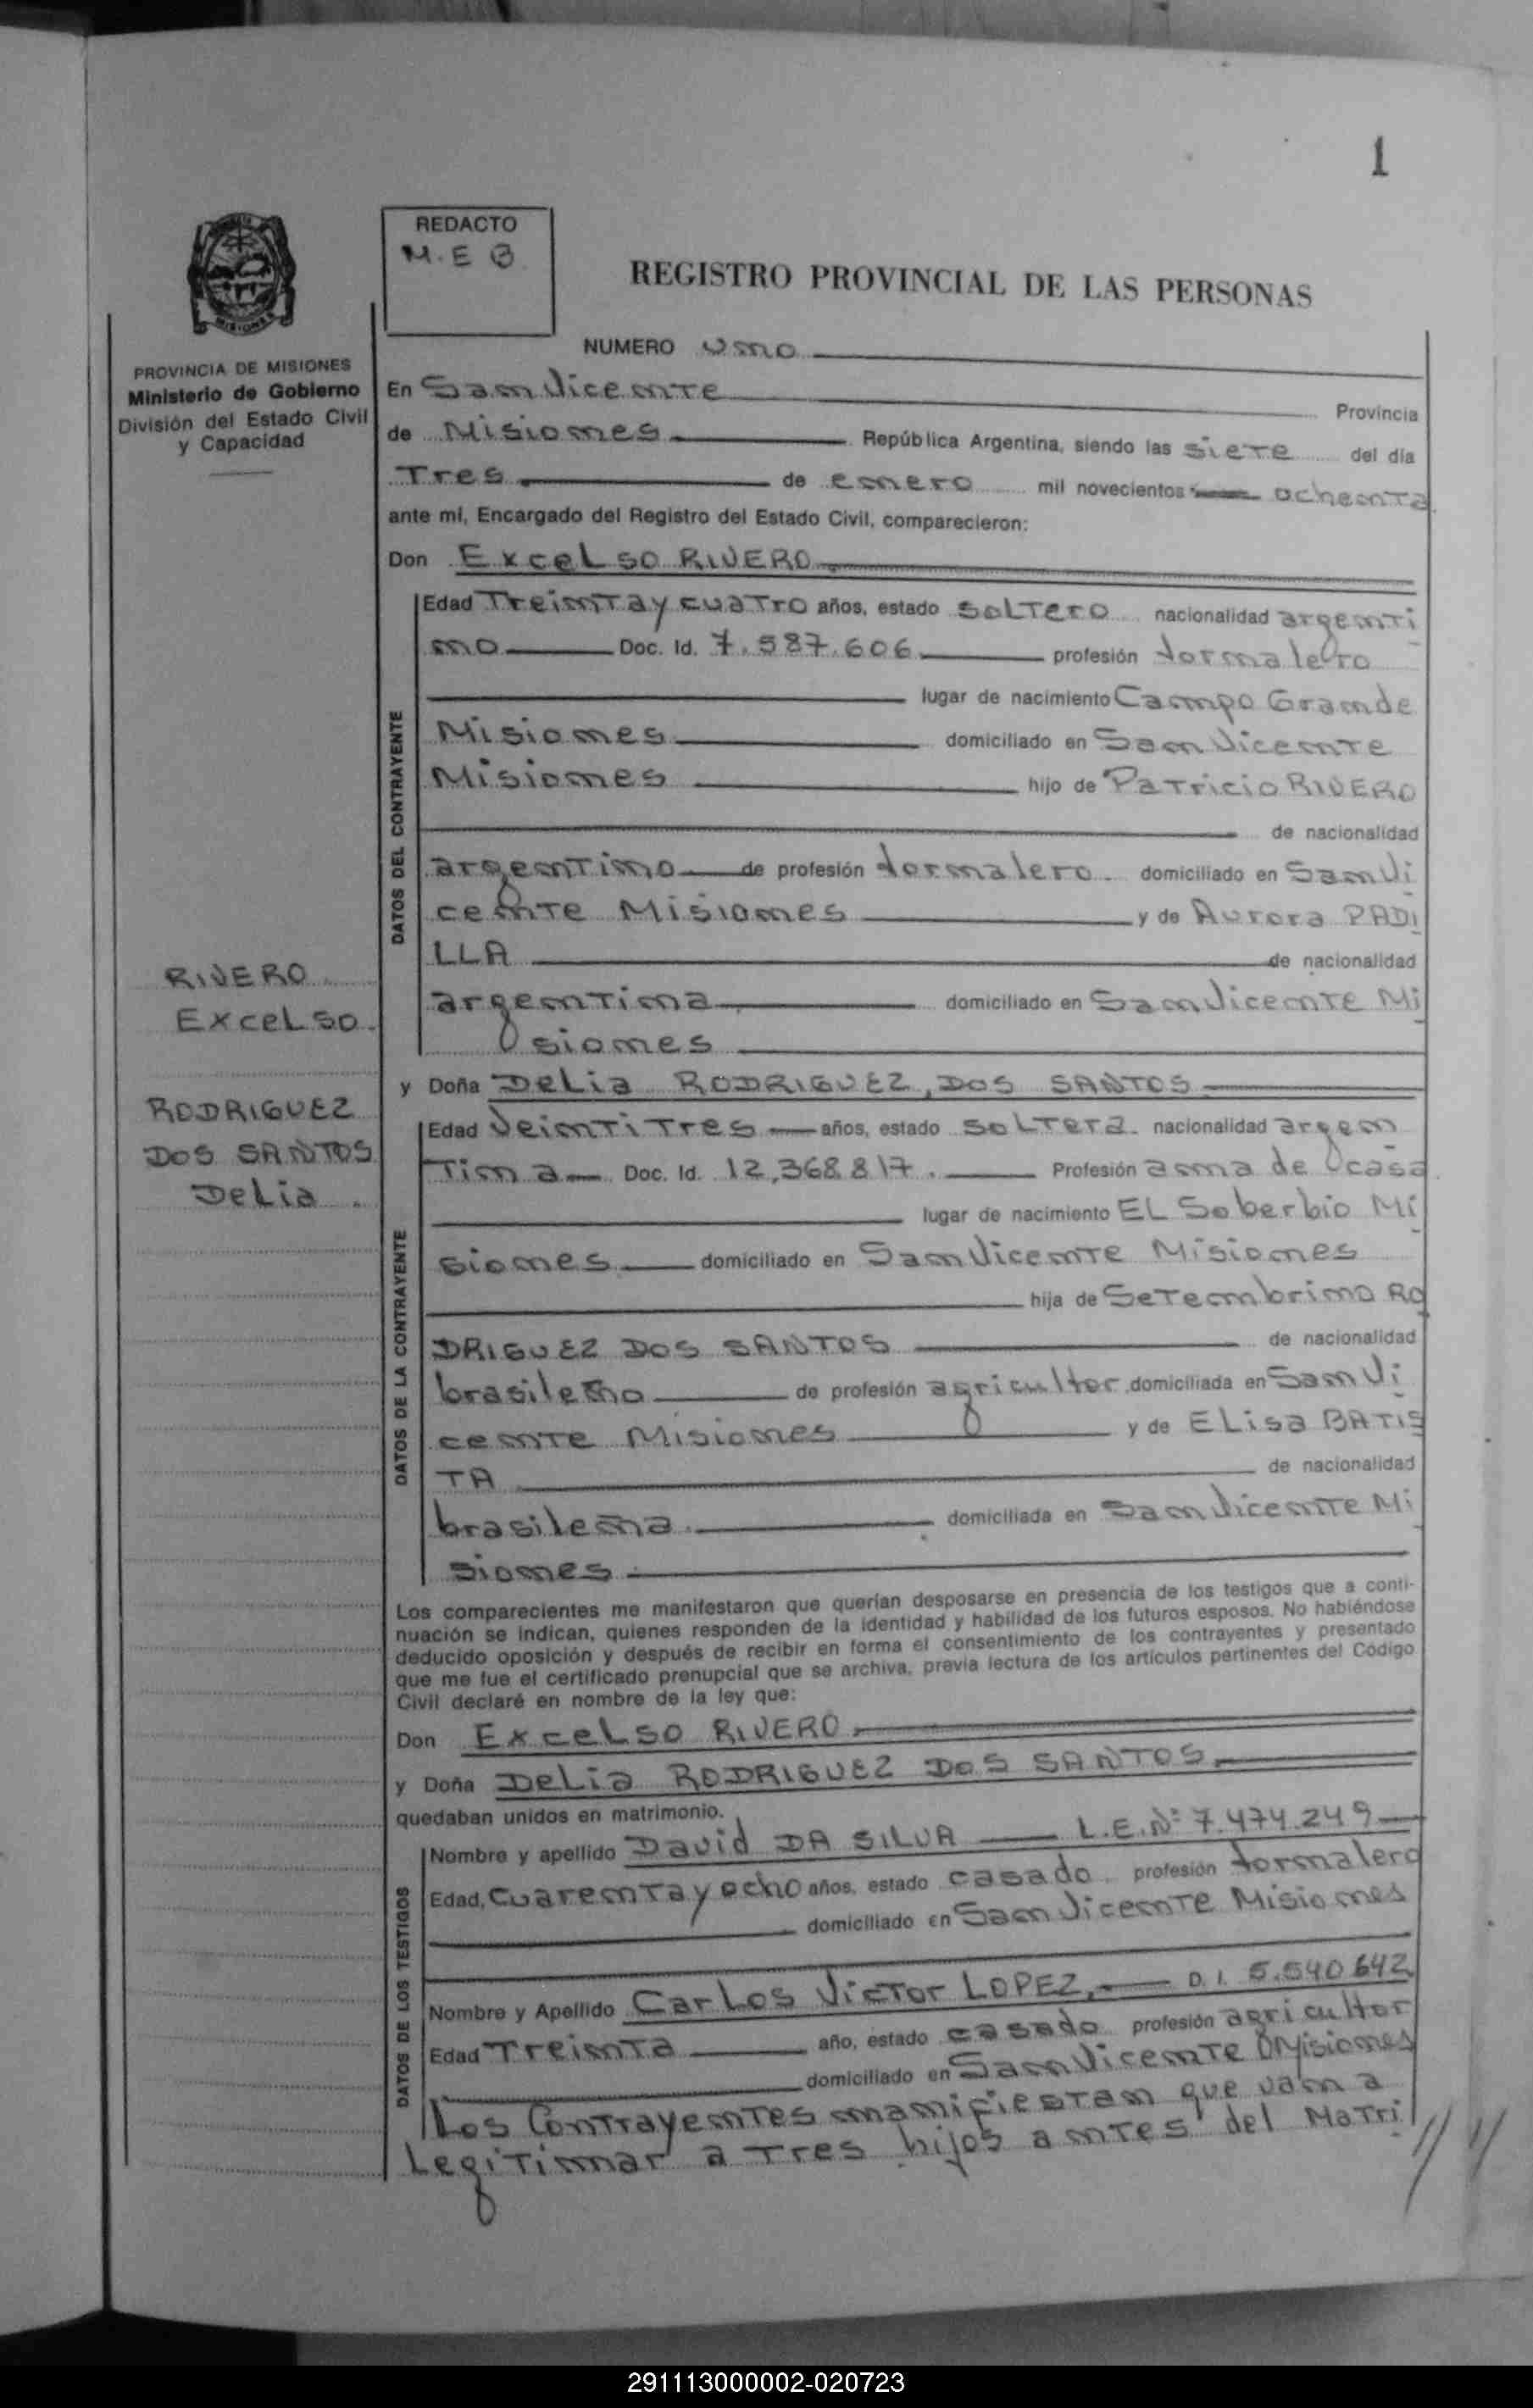 1
REDACTO
M.E B
REGISTRO PROVINCIAL DE LAS PERSONAS
PROVINCIA DE MISIONES
Ministerio de Gobierno
División del Estado Civil
y Capacidad
NUMERO uno
En San Vicente Provincia
de Misiones República Argentina, siendo las siete del día
Tres de enero mil novecientos ochenta
ante mí, Encargado del Registro del Estado Civil, comparecieron:
Don Excelso RIVERO
DATOS DEL CONTRAYENTE
Edad Treinta y cuatro años, estado soltero nacionalidad argenti
no Doc. Id. 7.587.606 profesión Jornalero
lugar de nacimiento Campo Grande
Misiones domiciliado en San Vicente
Misiones hijo de Patricio RIVERO
de nacionalidad
argentino de profesión Jornalero domiciliado en San Vi
cente Misiones y de Aurora PADI
LLA de nacionalidad
argentina domiciliado en San Vicente Mi
siones
RIVERO
Excelso.
RODRIGUEZ
DOS SANTOS
Delia.
y Doña Delia RODRIGUEZ, DOS SANTOS
DATOS DE LA CONTRAYENTE
Edad Veinti Tres años, estado soltera nacionalidad argen
tina Doc. Id. 12,368.817. Profesión ama de casa
lugar de nacimiento EL Soberbio Mi
siones domiciliado en San Vicente Misiones
hija de Setembrino RO
DRIGUEZ DOS SANTOS de nacionalidad
brasileño de profesión agricultor domiciliada en San Vi
cente Misiones y de Elisa BATIS
TA de nacionalidad
brasileña. domiciliada en San Vicente Mi
siones.
Los comparecientes me manifestaron que querían desposarse en presencia de los testigos que a conti-
nuación se indican, quienes responden de la identidad y habilidad de los futuros esposos. No habiéndose
deducido oposición y después de recibir en forma el consentimiento de los contrayentes y presentado
que me fue el certificado prenupcial que se archiva, previa lectura de los artículos pertinentes del Código
Civil declaré en nombre de la ley que:
Don Excelso RIVERO
y Doña Delia RODRIGUEZ DOS SANTOS
quedaban unidos en matrimonio.
DATOS DE LOS TESTIGOS
Nombre y apellido David DA SILVA L.E.Nº 7.474.249
Edad, Cuarenta y ocho años, estado casado. profesión Jornalero
domiciliado en San Vicente Misiones
Nombre y Apellido Carlos Victor LOPEZ, D.I. 5.540.642
Edad Treinta año, estado casado profesión agricultor
domiciliado en San Vicente Misiones
Los Contrayentes manifiestan que van a
Legitimar a Tres hijos antes del Matri//
291113000002-020723